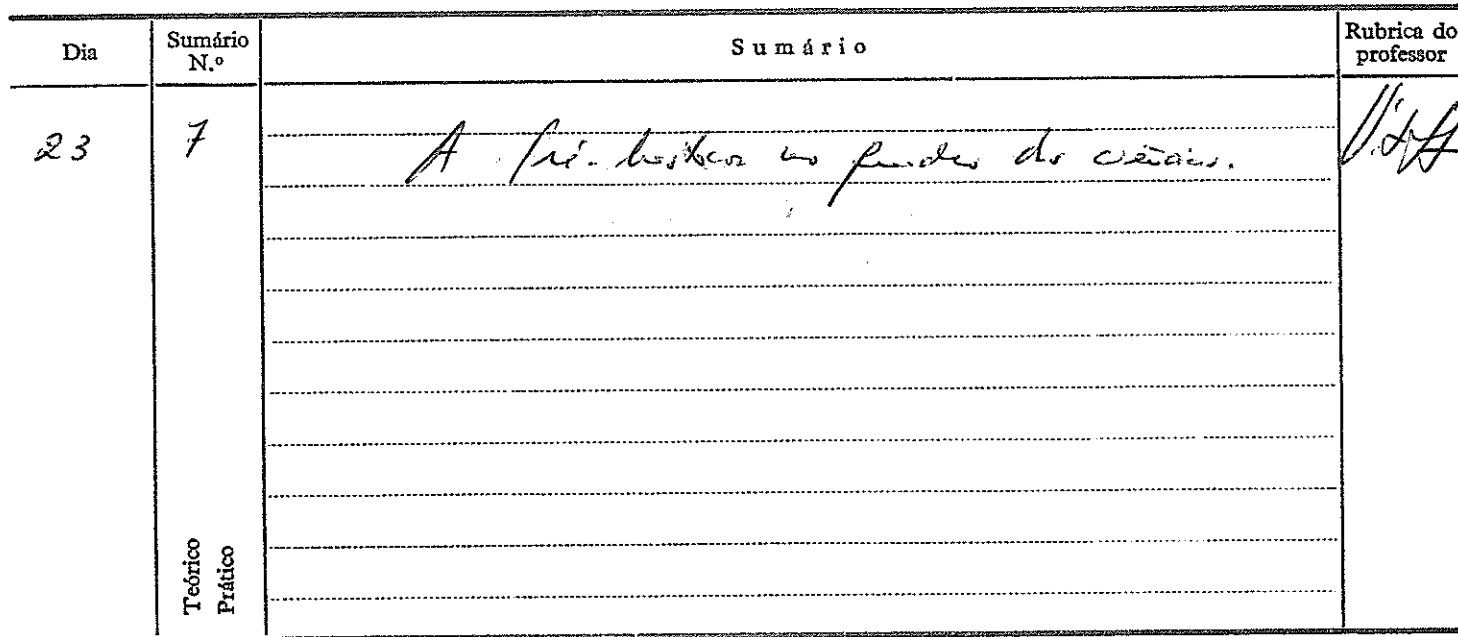 Dia
Sumário N.º
Sumário
Rubrica do professor
23
7
A Pré-história no das ciências.
Teórico
Prático